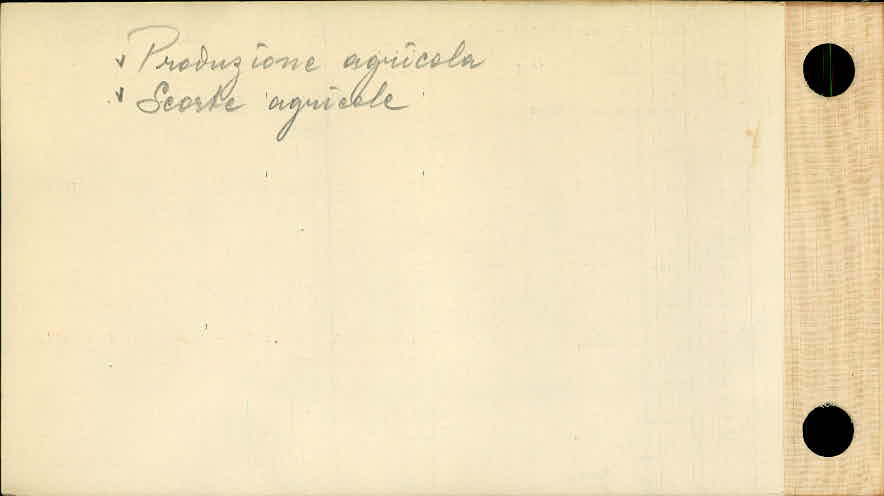 ✓ Produzione agricola
✓ Scorte agricole